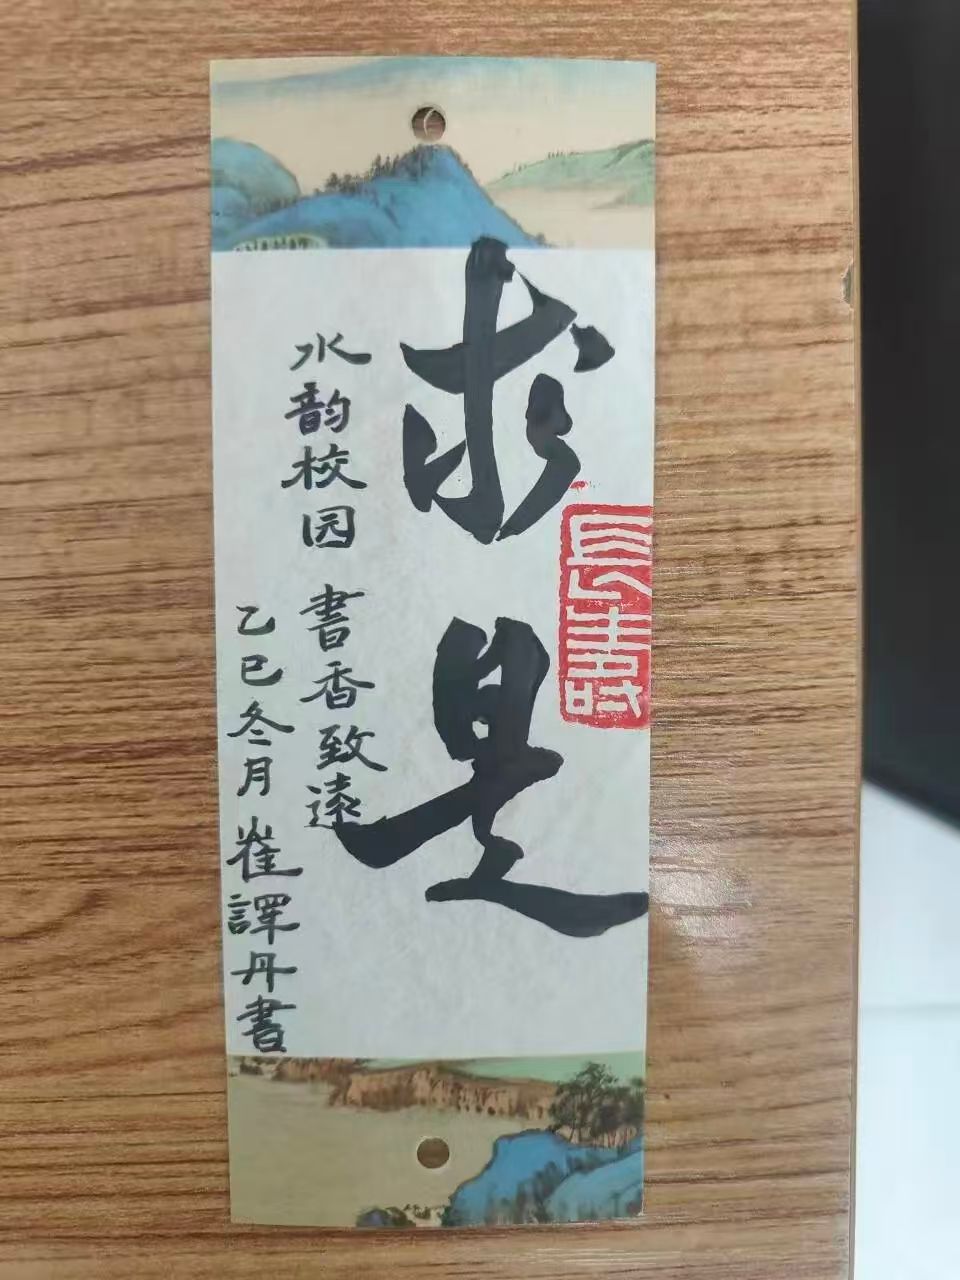 求是
長壽
水韵校园 書香致遠
乙巳冬月崔譯丹書